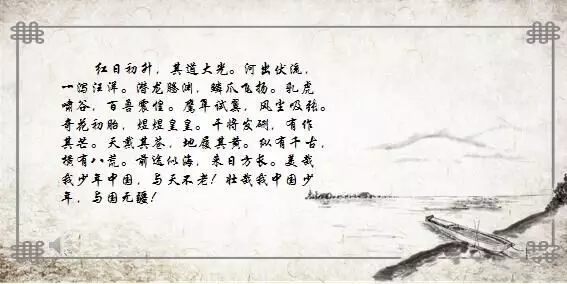 红日初升，其道大光。河出伏流，
一泻汪洋。潜龙腾渊，鳞爪飞扬。乳虎
啸谷，百兽震惶。鹰隼试翼，风尘吸张。
奇花初胎，煜煜皇皇。干将发硎，有作
其芒。天戴其苍，地履其黄。纵有千古，
横有八荒。前途似海，来日方长。美哉
我少年中国，与天不老！壮哉我中国少
年，与国无疆！